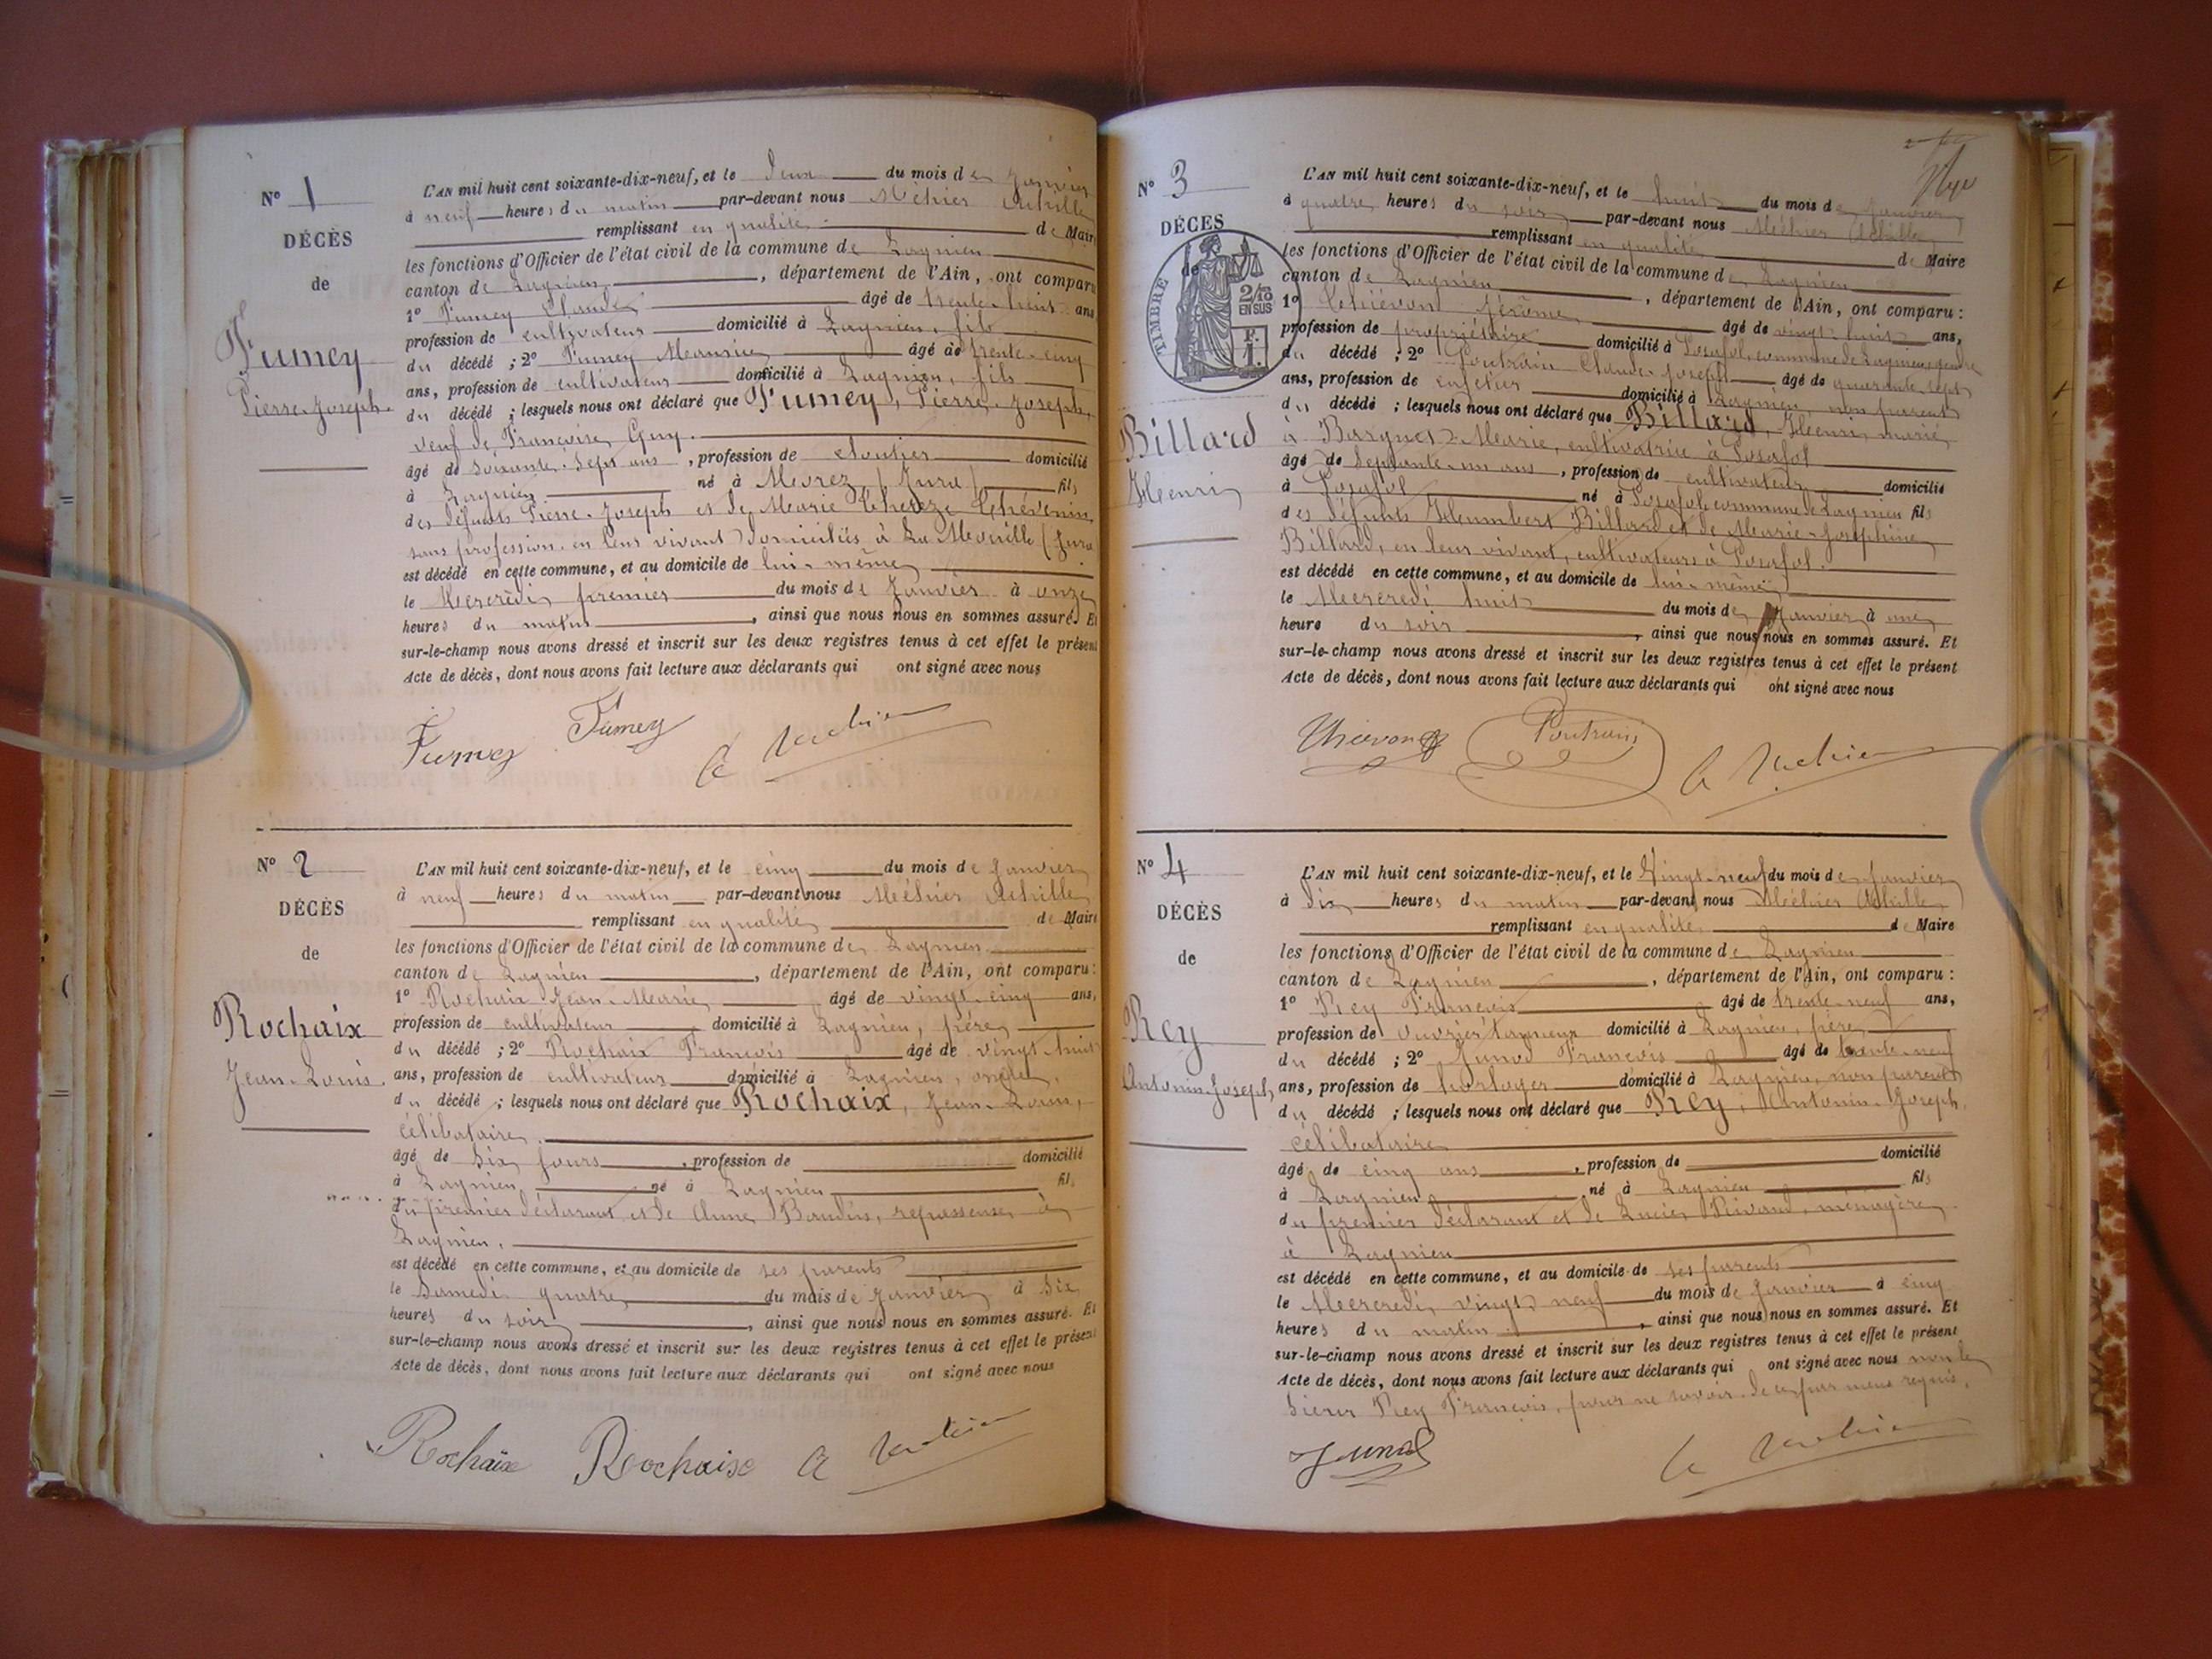 N° 1
DÉCÈS
de
Fumey
Pierre-Joseph.
L'AN mil huit cent soixante-dix-neuf, et le deux du mois de Janvier
à neuf heures du matin par-devant nous Méhier Achille
remplissant en qualité de Maire
les fonctions d'Officier de l'état civil de la commune de Lagnieu
canton de Lagnieu, département de l'Ain, ont comparu
1° Fumey Claude âgé de trente-huit ans
profession de cultivateur domicilié à Lagnieu, fils
du décédé ; 2° Fumey Maurice âgé de trente-cinq
ans, profession de cultivateur domicilié à Lagnieu, fils
du décédé ; lesquels nous ont déclaré que Fumey, Pierre-Joseph,
veuf de Françoise Guy.
âgé de soixante-sept ans, profession de cloutier domicilié
à Lagnieu né à Morez (Jura) fils
des défunts Pierre-Joseph et de Marie Thérèze Thévenin
sans profession en leur vivant domiciliés à La (Jura
est décédé en cette commune, et au domicile de lui-même
le Mercredi premier du mois de Janvier à onze
heures du matin, ainsi que nous nous en sommes assuré. Et
sur-le-champ nous avons dressé et inscrit sur les deux registres tenus à cet effet le présent
Acte de décès, dont nous avons fait lecture aux déclarants qui ont signé avec nous
Fumey Fumey A Méhier
N° 2
DÉCÈS
de
Rochaix
Jean-Louis.
L'AN mil huit cent soixante-dix-neuf, et le cinq du mois de Janvier
à neuf heures du matin par-devant nous Méhier Achille
remplissant en qualité de Maire
les fonctions d'Officier de l'état civil de la commune de Lagnieu
canton de Lagnieu, département de l'Ain, ont comparu :
1° Rochaix Jean-Marie âgé de vingt-cinq ans,
profession de cultivateur, domicilié à Lagnieu, père
du décédé ; 2° Rochaix François âgé de vingt-huit
ans, profession de cultivateur domicilié à Lagnieu, oncle
du décédé ; lesquels nous ont déclaré que Rochaix, Jean-Louis,
célibataire.
âgé de six jours, profession de domicilié
à Lagnieu né à Lagnieu fils
du premier déclarant et de Anne Baudin, repasseuse à
Lagnieu.
est décédé en cette commune, et au domicile de ses parents
le Samedi quatre du mois de Janvier à six
heures du soir, ainsi que nous nous en sommes assuré. Et
sur-le-champ nous avons dressé et inscrit sur les deux registres tenus à cet effet le présent
Acte de décès, dont nous avons fait lecture aux déclarants qui ont signé avec nous
Rochaix Rochaix A Méhier
N° 3
DÉCÈS
de
TIMBRE
2/10
EN SUS
F.
1.
Billard
Henri
L'AN mil huit cent soixante-dix-neuf, et le huit du mois de Janvier
à quatre heures du soir par-devant nous Méhier Achille
remplissant en qualité de Maire
les fonctions d'Officier de l'état civil de la commune de Lagnieu
canton de Lagnieu, département de l'Ain, ont comparu :
1° Thiévon Jérôme, âgé de vingt-huit ans,
profession de propriétaire domicilié à Posafol, commune de Lagnieu, gendre
du décédé ; 2° Poutrain Claude-Joseph âgé de quarante-sept
ans, profession de cafetier domicilié à Lagnieu, non parent
du décédé ; lesquels nous ont déclaré que Billard, Henri, marié
à Marie, cultivatrice à Posafol
âgé de septante-un ans, profession de cultivateur domicilié
à Posafol né à Posafol, commune de Lagnieu fils
des défunts Humbert Billard et de Marie-Joséphine
Billard, en leur vivant, cultivateurs à Posafol.
est décédé en cette commune, et au domicile de lui-même
le Mercredi huit du mois de Janvier à une
heure du soir, ainsi que nous nous en sommes assuré. Et
sur-le-champ nous avons dressé et inscrit sur les deux registres tenus à cet effet le présent
Acte de décès, dont nous avons fait lecture aux déclarants qui ont signé avec nous
Thievon Poutrain A Méhier
N° 4
DÉCÈS
de
Rey
Antonin-Joseph
L'AN mil huit cent soixante-dix-neuf, et le Vingt-neuf du mois de Janvier
à dix heures du matin par-devant nous Méhier Achille
remplissant en qualité de Maire
les fonctions d'Officier de l'état civil de la commune de Lagnieu
canton de Lagnieu, département de l'Ain, ont comparu :
1° Rey François âgé de trente-neuf ans,
profession de ouvrier tanneur domicilié à Lagnieu, père
du décédé ; 2° Junod François âgé de trente-neuf
ans, profession de horloger domicilié à Lagnieu, non parent
du décédé ; lesquels nous ont déclaré que Rey, Antonin-Joseph,
célibataire
âgé de cinq ans, profession de domicilié
à Lagnieu né à Lagnieu fils
du premier déclarant et de Lucie Rivand, ménagère
à Lagnieu
est décédé en cette commune, et au domicile de ses parents
le Mercredi vingt-neuf du mois de Janvier à cinq
heures du matin, ainsi que nous nous en sommes assuré. Et
sur-le-champ nous avons dressé et inscrit sur les deux registres tenus à cet effet le présent
Acte de décès, dont nous avons fait lecture aux déclarants qui ont signé avec nous non le
Sieur Rey François, pour ne savoir de ce par nous requis.
Junod A Méhier